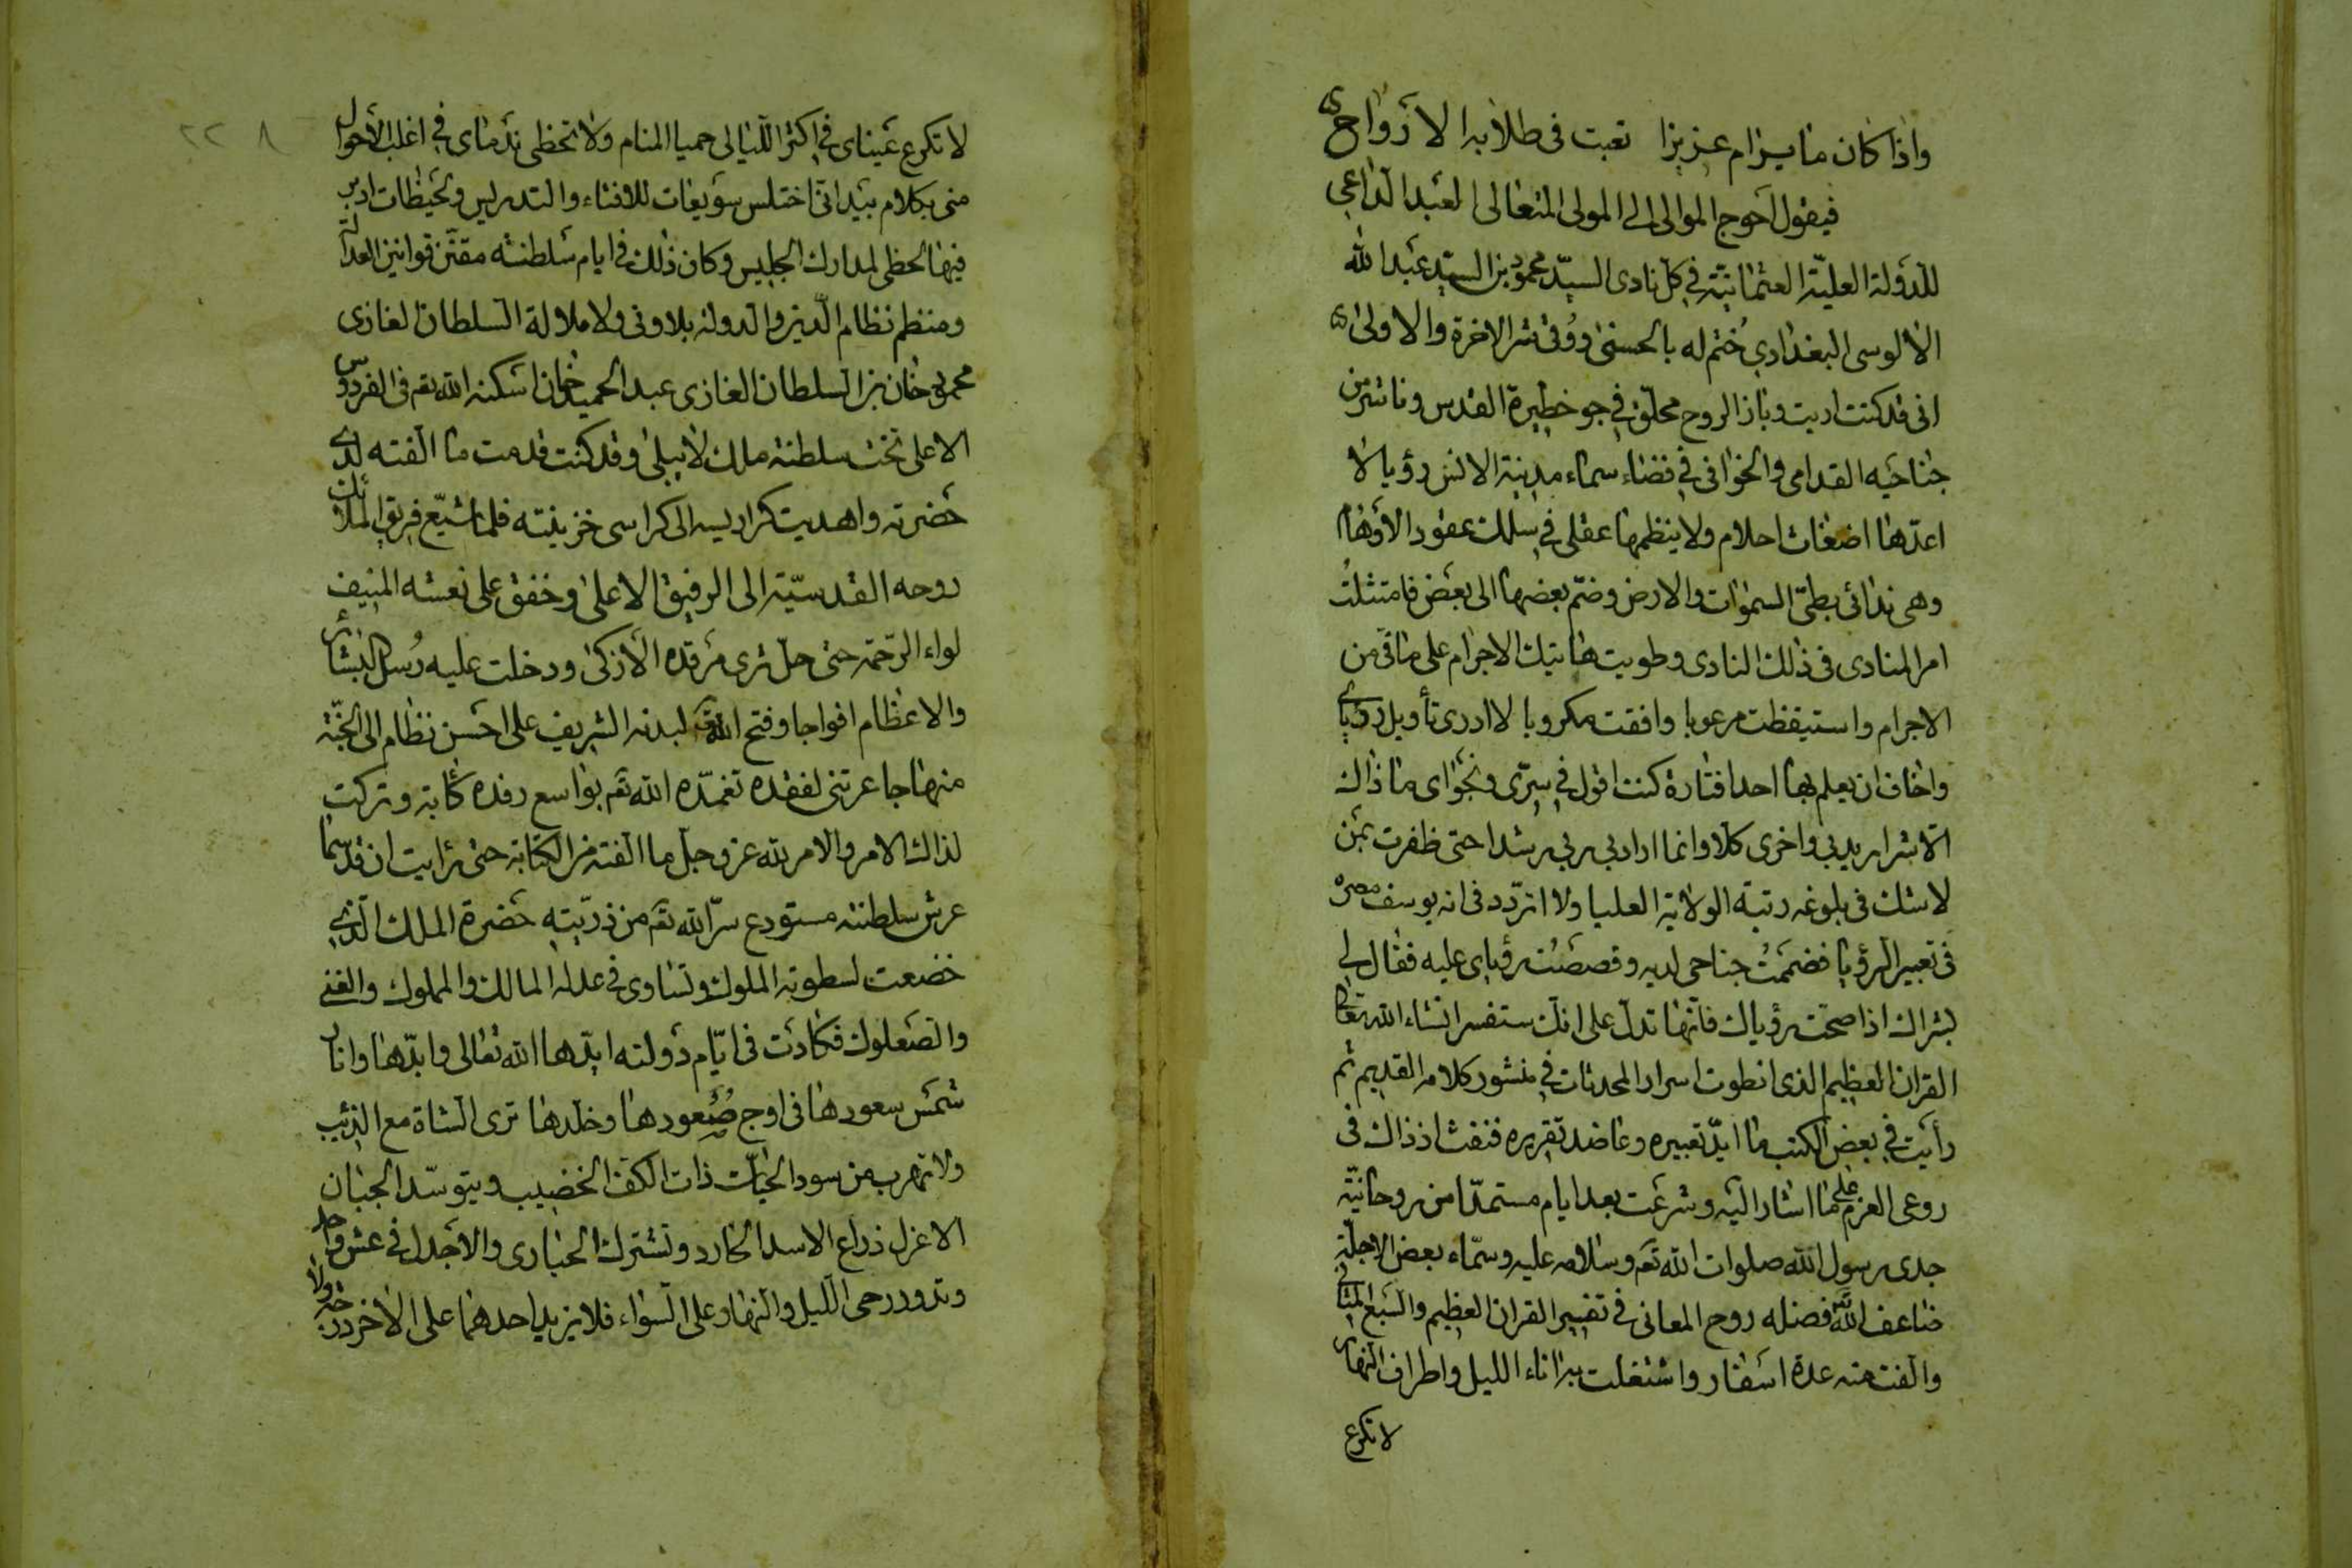 واذا كان ما يرام عزيزا تعبت فى طلابه الارواح
فيقول احوج الموالى الى المولى المتعالى العبد الداعى
للدولة العليّة العثمانيّة فى كل نادى السيّد محمود بن السيّد عبد الله
الالوسى البغدادى ختم له بالحسنى ووُقى شر الاخرة والاولى
انى قد كنت اريت وباز الروح محلّق فى جو حظيرة القدس وناشر من
جناحيه القدامى والخوافى فى فضاء سماء مدينة الانس رؤيا لا
اعدّها اضغاث احلام ولا ينظمها عقلى فى سلك عقود الاوهام
وهى ندائى بطىّ السموات والارض وضم بعضها الى بعض فامتثلتُ
امر المنادى فى ذلك النادى وطويت هاتيك الاجرام على ما فى من
الاجرام واستيقظت مرعوبا وافقت مكروبا لا ادرى تأويل رؤياى
واخاف ان يعلم بها احد افتارة كنت اقول فى سرّى ونجواى ما ذاك
الّا شر اريد بى واخرى كلا وانما اراد بى ربى رشدا حتى ظفرت بمن
لا شك فى بلوغه رتبة الولاية العليا ولا اتردّد فى انه يوسف مصره
فى تعبير الرؤيا فضممتُ جناحى لديه وقصصتُ رؤياى عليه فقال لى
بشراك اذا صحّت رؤياك فانّها تدلّ على انك ستفسر انشاء الله تعالى
القران العظيم الذى انطوت اسرار المحدثات فى منشور كلامه القديم ثم
رأيت فى بعض الكتب ما ايّد تعبيره وعاضد تقريره فنفث اذ ذاك فى
روعى العزم على ما اشار اليه وشرعت بعد ايام مستمدّا من روحانيّة
جدى رسول الله صلوات الله تع وسلامه عليه وسمّاه بعض الاجلّة
ضاعف الله تع فضله روح المعانى فى تفسير القران العظيم والسبع المثانى
والّفت منه عدة اسفار واشتغلت به اناء الليل واطراف النهار
لا تكرع
٢٢٨
لا تكرع عيناى فى اكثر الليالى حميا المنام ولا تحظى ندماى فى اغلب الاحوال
منى بكلام بيد انّى اختلس سويعات للافتاء والتدريس ولحيظات ادير
فيها لحظى لمدارك الجليس وكان ذلك فى ايام سلطنته مقنّن قوانين العدالة
ومنظم نظام الدين والدولة بلا ونى ولا ملالة السلطان الغازى
محمود خان بن السلطان الغازى عبد الحميد خان اسكنه الله تع فى الفردوس
الاعلى تخت سلطنة ملك لا يبلى وقد كنت قدمت ما الفته لدى
حضرته واهديت كراريسه الى كراسى خزينته فلما شيّع فريق الملائك
روحه القدسيّة الى الرفيق الاعلى وخفق على نعشه المنيف
لواء الرّحمة حتى حلّ ثرى مرقده الازكى ودخلت عليه رُسل البشائر
والاعظام افواجا وفتح الله تع لبدنه الشريف على احسن نظام الى الجنّة
منهاجا عرتنى لفقده تغمّده الله تع بواسع رفده كآبة وتركت
لذاك الامر والامر لله عز وجل ما الفته من الكتابة حتى رايت ان قد سما
عرش سلطنته مستودع سرّ الله تع من ذريّته حضرة الملك الذى
خضعت لسطوته الملوك وتساوى فى عدله المالك والمملوك والغنى
والصعلوك فكادت فى ايّام دولته ايّدها الله تعالى وابّدها وانار
شمس سعودها فى اوج صُعودها وخلّدها ترى الشاة مع الذئب
ولا تهرب من سود الحيّات ذات الكف الخضيب ويتوسّد الجبان
الاعزل ذراع الاسد الحارد وتشترك الحبارى والاجدل فى عش واحد
وتدور رحى الليل والنهار على السواء فلا يزيد احدهما على الاخر درجة ولا